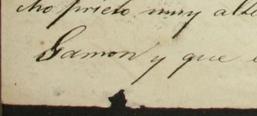 cho prieto muy alto
Gamon y que